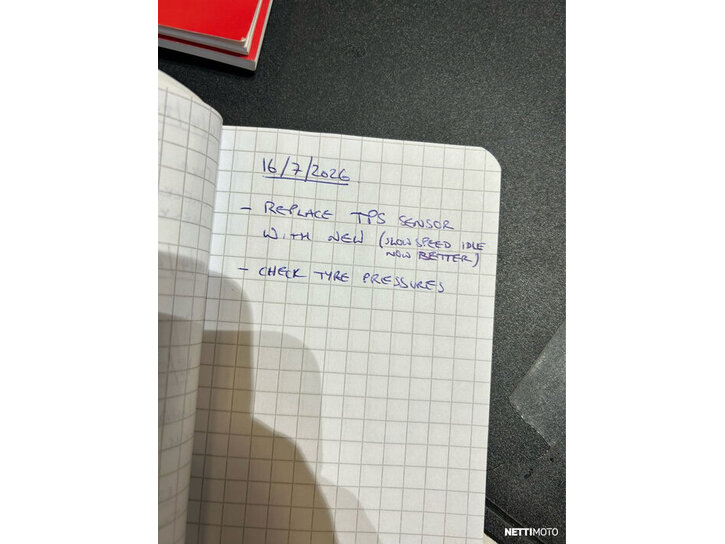 16/7/2026
- REPLACE TPS SENSOR
WITH NEW (SLOW SPEED IDLE
NOW BETTER)
- CHECK TYRE PRESSURES
NETTIMOTO